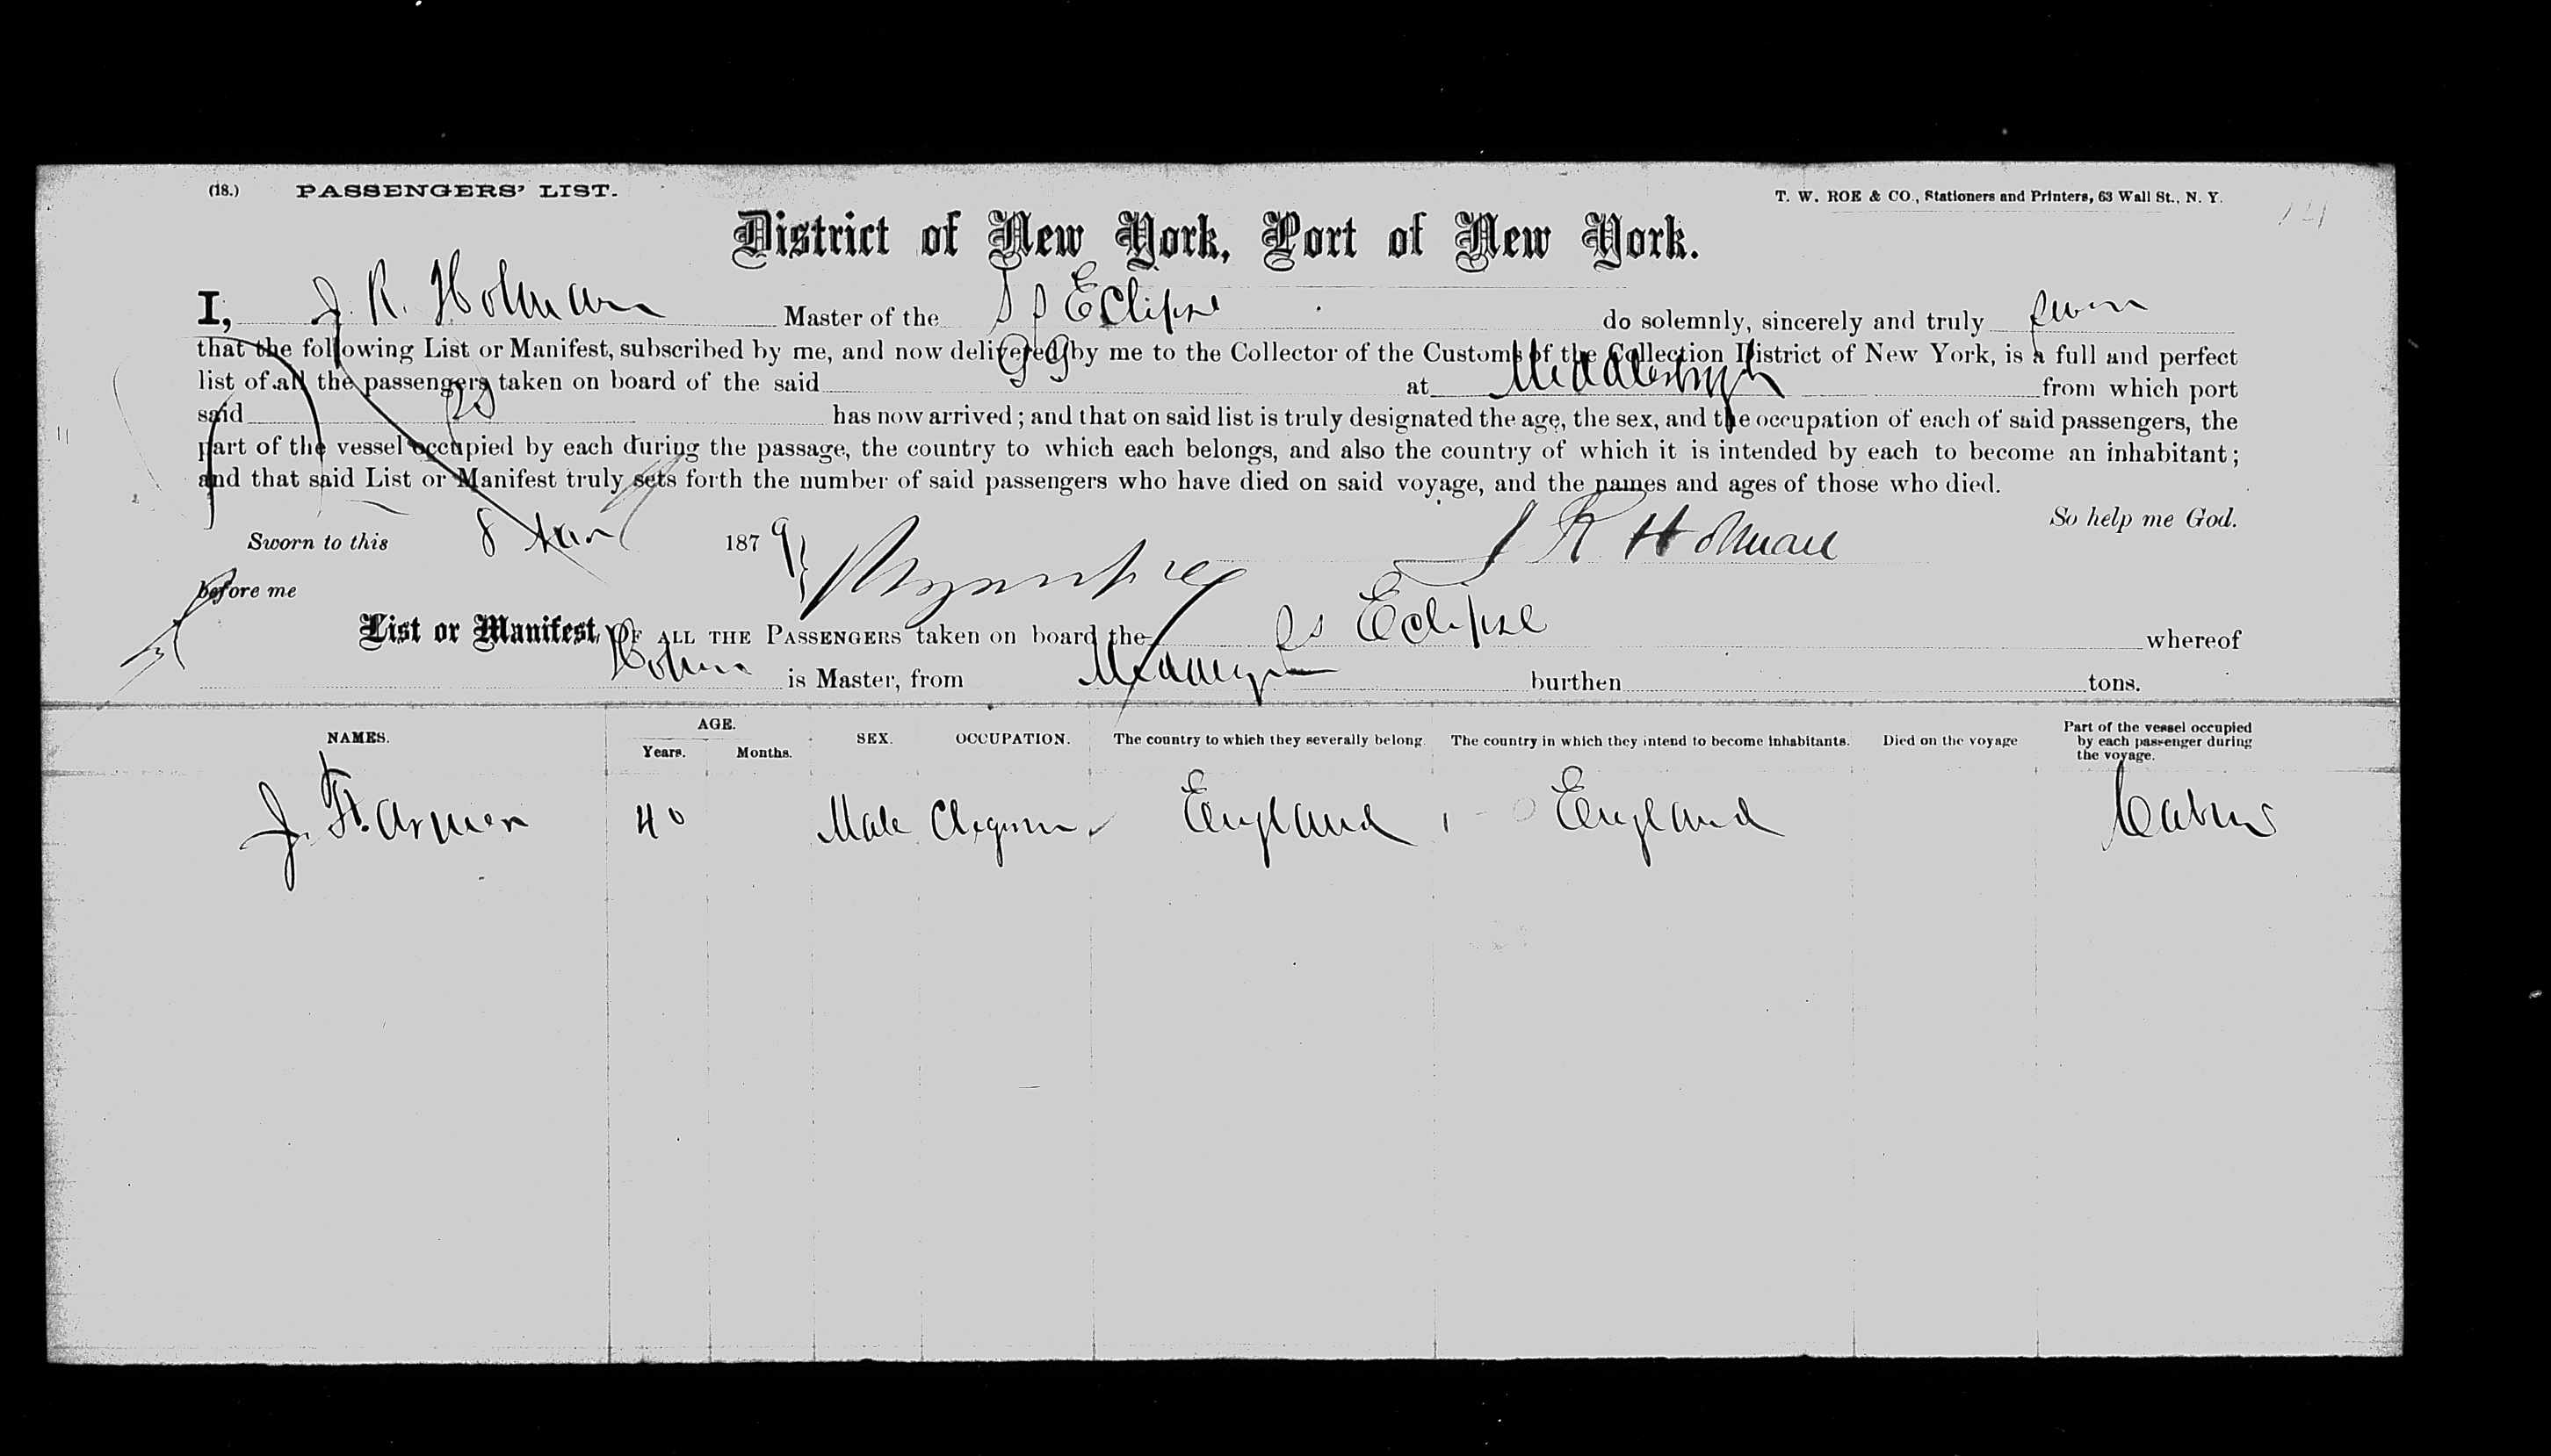 (18.) PASSENGERS' LIST.
T. W. ROE & CO., Stationers and Printers, 63 Wall St., N. Y.
District of New York, Port of New York.
I, J. R. Holman Master of the SS Eclipse do solemnly, sincerely and truly swear
that the following List or Manifest, subscribed by me, and now delivered by me to the Collector of the Customs of the Collection District of New York, is a full and perfect
list of all the passengers taken on board of the said SS at Middlesbrgh from which port
said SS has now arrived; and that on said list is truly designated the age, the sex, and the occupation of each of said passengers, the
part of the vessel occupied by each during the passage, the country to which each belongs, and also the country of which it is intended by each to become an inhabitant;
and that said List or Manifest truly sets forth the number of said passengers who have died on said voyage, and the names and ages of those who died.
So help me God.
Sworn to this 8 1879 J R Holman
before me
List or Manifest, OF ALL THE PASSENGERS taken on board the SS Eclipse whereof
Holman is Master, from burthen tons.
NAMES. AGE. Years. Months. SEX. OCCUPATION. The country to which they severally belong. The country in which they intend to become inhabitants. Died on the voyage Part of the vessel occupied by each passenger during the voyage.
J. Farmer 40 Male England England Cabin